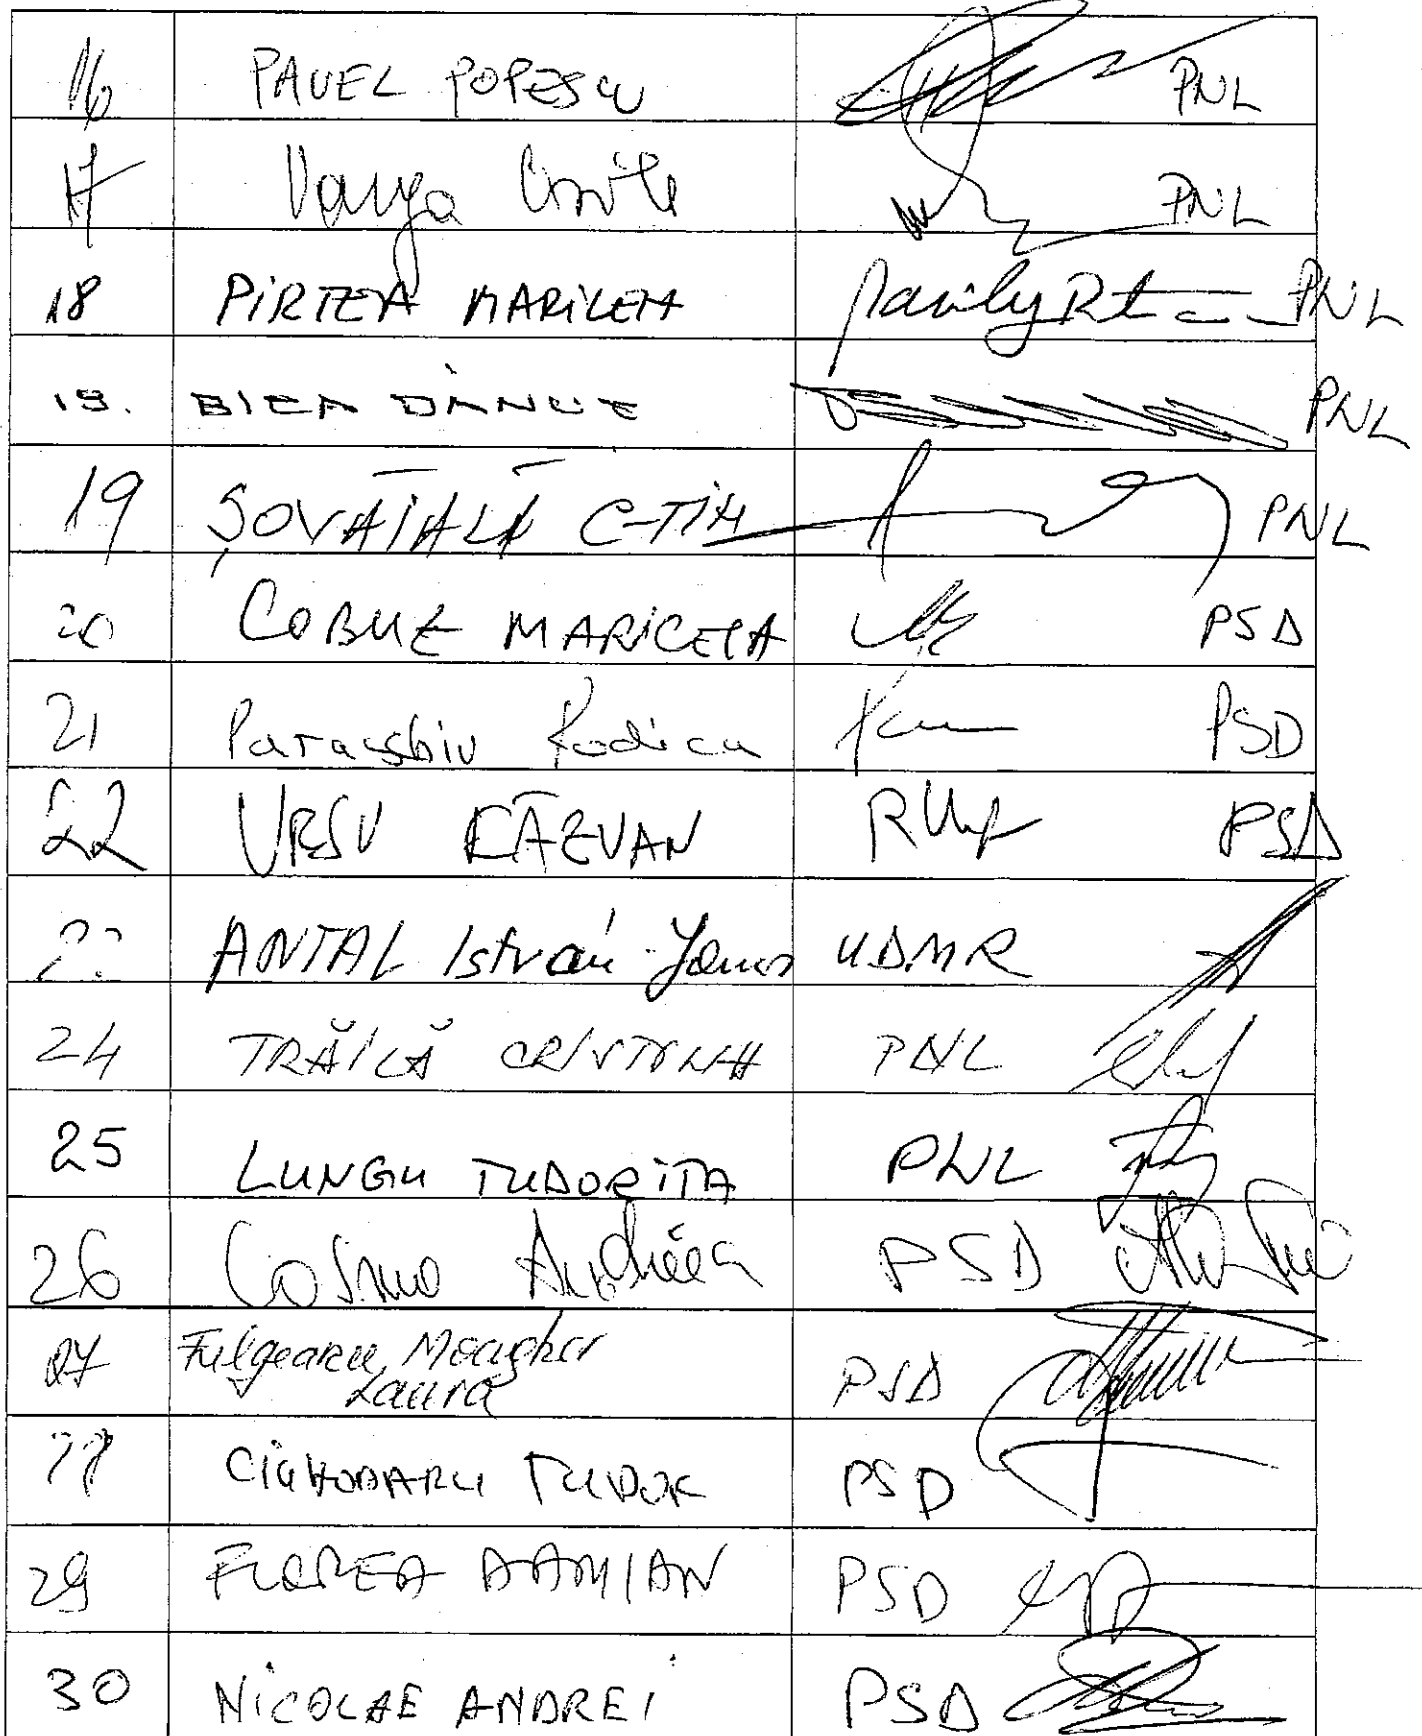 16 PAVEL POPESCU PNL
17 Varga PNL
18 PIRTEA MARILENA PNL
19. BICA DANUT PNL
19 ȘOVĂIALĂ C-TIN PNL
20 COBUZ MARICELA PSD
21 Paraschiv Rodica PSD
22 URSU RĂZVAN PSD
ANTAL István-János UDMR
24 TRĂILĂ CRISTINA PNL
25 LUNGU TUDORIȚA PNL
26 Cosma Andreea PSD
27 Fulgeanu Moagher
Laura PSD
CIUHODARU TUDOR PSD
29 FLOREA DAMIAN PSD
30 NICOLAE ANDREI PSD